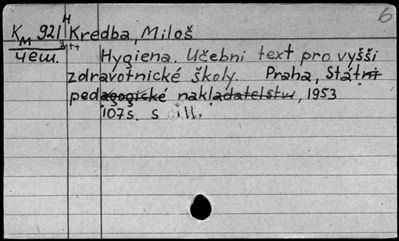 6
Км 921 H Kredba, Miloš
чеш. Hygiena. Učebni text pro vyšši
zdravotnické školy. Praha, Státni
pedagogické nakladatelstvi, 1953
107s. s ill.